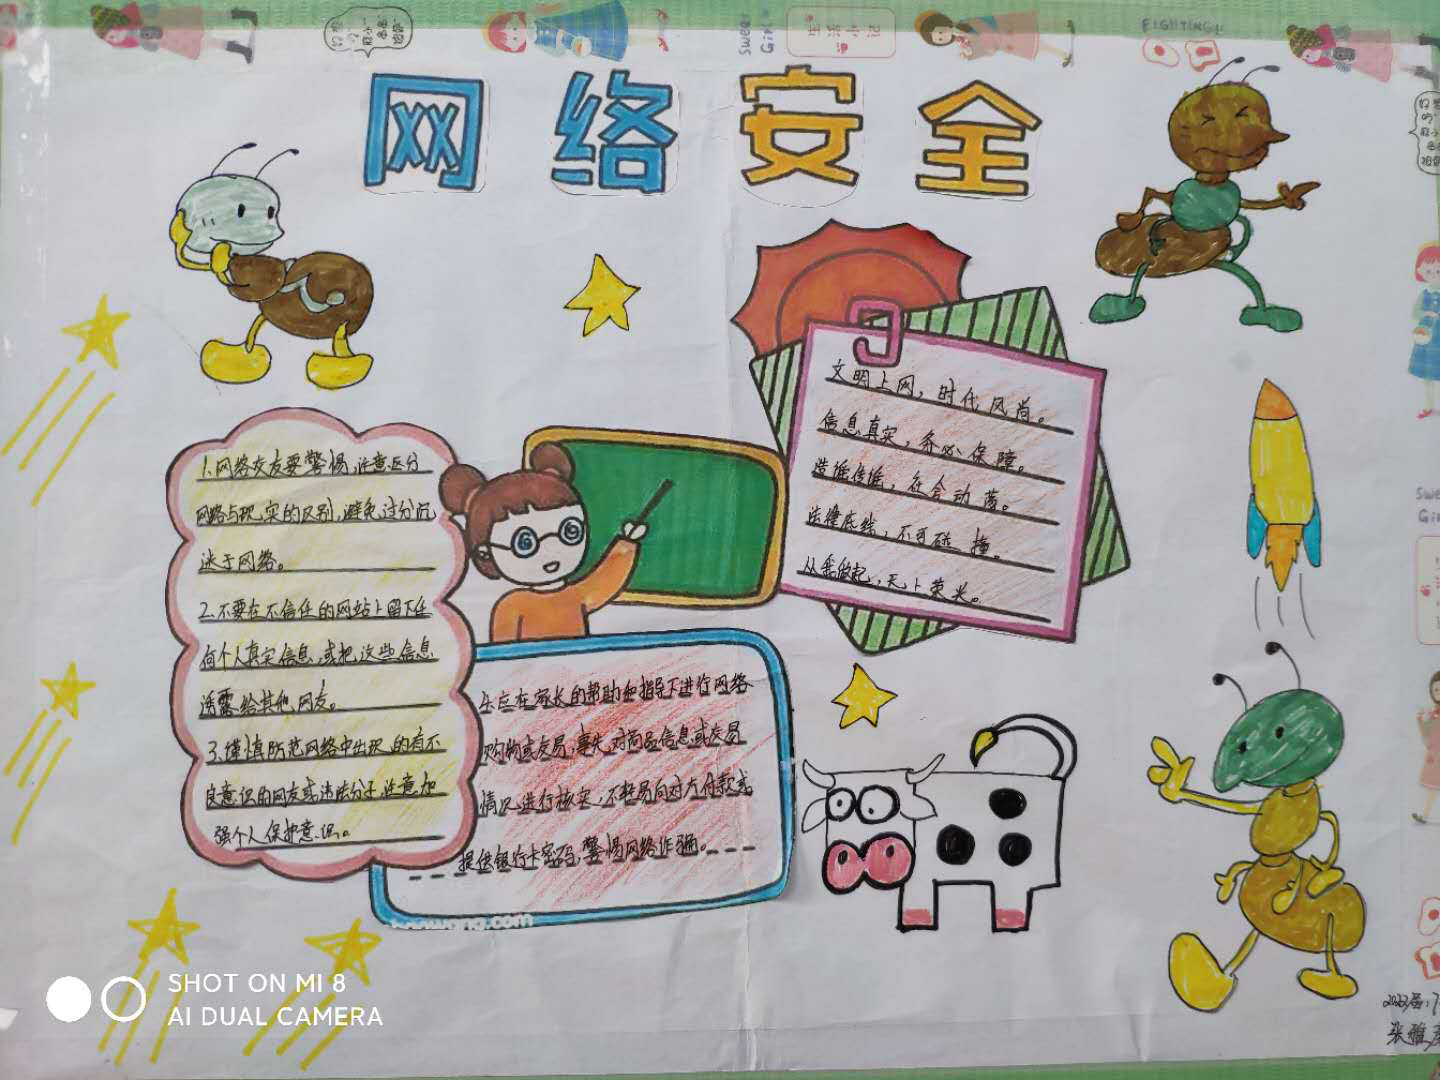 网 络 安 全
FIGHTING!
Sweet Girl
1.网络交友要警惕,注意区分
网络与现实的区别,避免过分沉
迷于网络。
2.不要在不信任的网站上留下任
何个人真实信息,或把这些信息
透露给其他网友。
3.谨慎防范网络中出现的有不
良意识的网友或违法分子,注意加
强个人保护意识。
文明上网,时代风尚。
信息真实,务必保障。
造谣传谣,社会动荡。
法律底线,不可碰撞。
从我做起,无上荣光。
4.应在家长的帮助和指导下进行网络
购物或交易,事先对商品信息或交易
情况进行核实,不轻易向对方付款或
提供银行卡密码,警惕网络诈骗。
SHOT ON MI 8
AI DUAL CAMERA